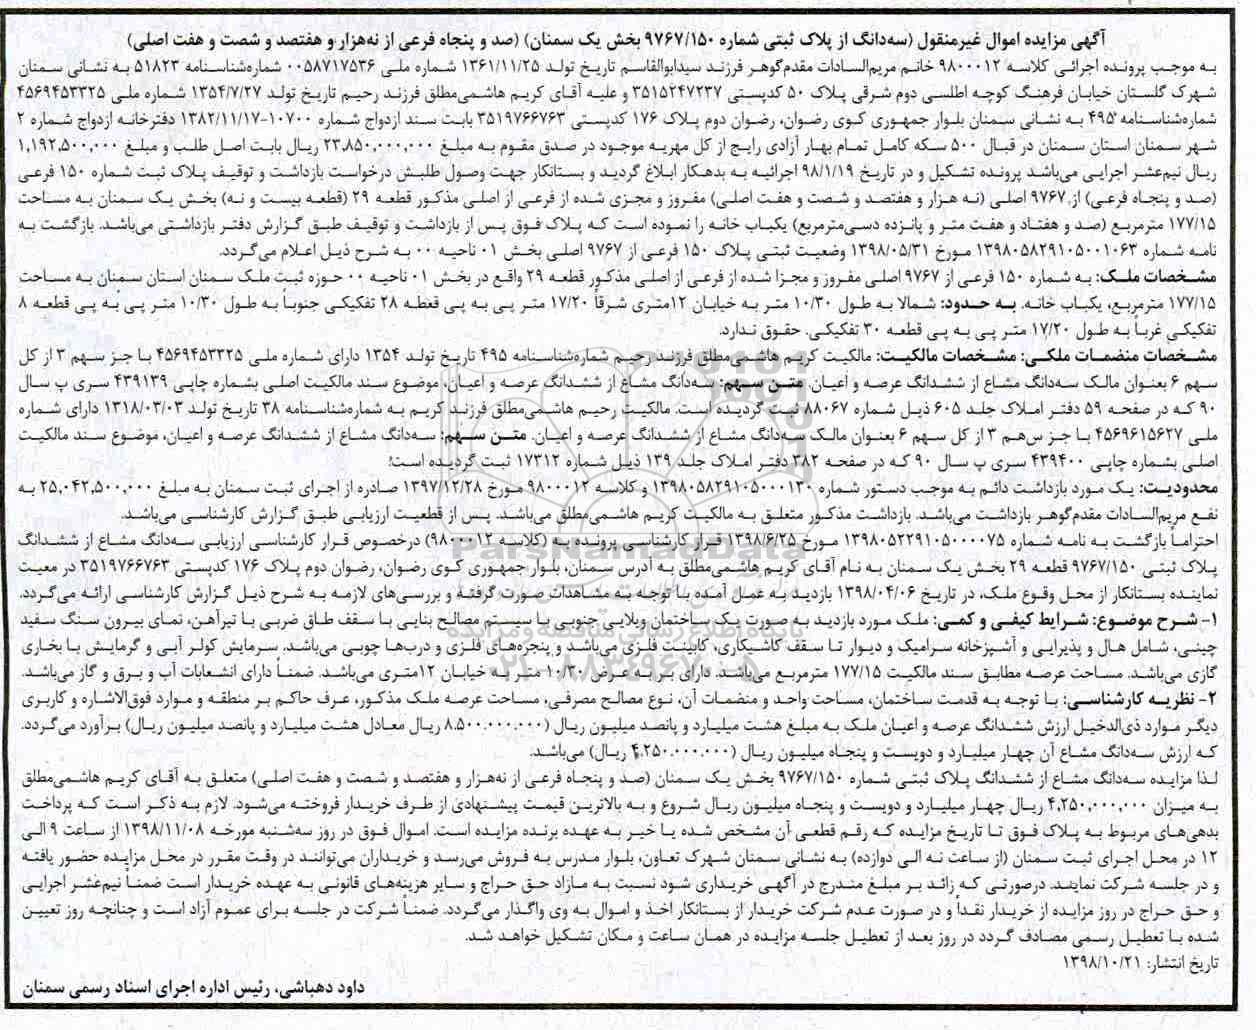 آگهی مزایده اموال غیرمنقول (سه‌دانگ از پلاک ثبتی شماره ۹۷۶۷/۱۵۰ بخش یک سمنان) (صد و پنجاه فرعی از نه‌هزار و هفتصد و شصت و هفت اصلی)
به موجب پرونده اجرائی کلاسه ۹۸۰۰۰۱۲ خانم مریم‌السادات مقدم‌گوهر فرزند سیدابوالقاسم تاریخ تولد ۱۳۶۱/۱۱/۲۵ شماره ملی ۰۰۵۸۷۱۷۵۳۶ شماره‌شناسنامه ۵۱۸۲۳ به نشانی سمنان
شهرک گلستان خیابان فرهنگ کوچه اطلسی دوم شرقی پلاک ۵۰ کدپستی ۳۵۱۵۲۴۷۲۳۷ و علیه آقای کریم هاشمی‌مطلق فرزند رحیم تاریخ تولد ۱۳۵۴/۷/۲۷ شماره ملی ۴۵۶۹۴۵۳۳۲۵
شماره‌شناسنامه ۴۹۵ به نشانی سمنان بلوار جمهوری کوی رضوان، رضوان دوم پلاک ۱۷۶ کدپستی ۳۵۱۹۷۶۶۷۶۳ بابت سند ازدواج شماره ۱۰۷۰۰-۱۳۸۲/۱۱/۱۷ دفترخانه ازدواج شماره ۲
شهر سمنان استان سمنان در قبال ۵۰۰ سکه کامل تمام بهار آزادی رایج از کل مهریه موجود در صدق مقوم به مبلغ ۲۳,۸۵۰,۰۰۰,۰۰۰ ریال بابت اصل طلب و مبلغ ۱,۱۹۲,۵۰۰,۰۰۰
ریال نیم‌عشر اجرایی می‌باشد پرونده تشکیل و در تاریخ ۹۸/۱/۱۹ اجرائیه به بدهکار ابلاغ گردید و بستانکار جهت وصول طلبش درخواست بازداشت و توقیف پلاک ثبت شماره ۱۵۰ فرعی
(صد و پنجاه فرعی) از ۹۷۶۷ اصلی (نه هزار و هفتصد و شصت و هفت اصلی) مفروز و مجزی شده از فرعی از اصلی مذکور قطعه ۲۹ (قطعه بیست و نه) بخش یک سمنان به مساحت
۱۷۷/۱۵ مترمربع (صد و هفتاد و هفت متر و پانزده دسی‌مترمربع) یکباب خانه را نموده است که پلاک فوق پس از بازداشت و توقیف طبق گزارش دفتر بازداشتی می‌باشد. بازگشت به
نامه شماره ۱۳۹۸۰۵۸۲۹۱۰۵۰۰۱۰۶۳ مورخ ۱۳۹۸/۰۵/۳۱ وضعیت ثبتی پلاک ۱۵۰ فرعی از ۹۷۶۷ اصلی بخش ۰۱ ناحیه ۰۰ به شرح ذیل اعلام می‌گردد.
مشخصات ملک: به شماره ۱۵۰ فرعی از ۹۷۶۷ اصلی مفروز و مجزا شده از فرعی از اصلی مذکور قطعه ۲۹ واقع در بخش ۰۱ ناحیه ۰۰ حوزه ثبت ملک سمنان استان سمنان به مساحت
۱۷۷/۱۵ مترمربع، یکباب خانه. به حدود: شمالا به طول ۱۰/۳۰ متر به خیابان ۱۲متری شرقاً ۱۷/۲۰ متر پی به پی قطعه ۲۸ تفکیکی جنوباً به طول ۱۰/۳۰ متر پی به پی قطعه ۸
تفکیکی غرباً به طول ۱۷/۲۰ متر پی به پی قطعه ۳۰ تفکیکی. حقوق ندارد.
مشخصات منضمات ملکی: مشخصات مالکیت: مالکیت کریم هاشمی مطلق فرزند رحیم شماره‌شناسنامه ۴۹۵ تاریخ تولد ۱۳۵۴ دارای شماره ملی ۴۵۶۹۴۵۳۳۲۵ با جز سهم ۳ از کل
سهم ۶ بعنوان مالک سه‌دانگ مشاع از ششدانگ عرصه و اعیان. متن سهم: سه‌دانگ مشاع از ششدانگ عرصه و اعیان، موضوع سند مالکیت اصلی بشماره چاپی ۴۳۹۱۳۹ سری پ سال
۹۰ که در صفحه ۵۹ دفتر املاک جلد ۶۰۵ ذیل شماره ۸۸۰۶۷ ثبت گردیده است. مالکیت رحیم هاشمی‌مطلق فرزند کریم به شماره‌شناسنامه ۳۸ تاریخ تولد ۱۳۱۸/۰۳/۰۳ دارای شماره
ملی ۴۵۶۹۶۱۵۶۲۷ با جز س‌هم ۳ از کل سهم ۶ بعنوان مالک سه‌دانگ مشاع از ششدانگ عرصه و اعیان. متن سهم: سه‌دانگ مشاع از ششدانگ عرصه و اعیان، موضوع سند مالکیت
اصلی بشماره چاپی ۴۳۹۴۰۰ سری پ سال ۹۰ که در صفحه ۳۸۲ دفتر املاک جلد ۱۳۹ ذیل شماره ۱۷۳۱۲ ثبت گردیده است.
محدودیت: یک مورد بازداشت دائم به موجب دستور شماره ۱۳۹۸۰۵۸۲۹۱۰۵۰۰۰۱۳۰ و کلاسه ۹۸۰۰۰۱۲ مورخ ۱۳۹۷/۱۲/۲۸ صادره از اجرای ثبت سمنان به مبلغ ۲۵,۰۴۲,۵۰۰,۰۰۰ به
نفع مریم‌السادات مقدم‌گوهر بازداشت می‌باشد. بازداشت مذکور متعلق به مالکیت کریم هاشمی‌مطلق می‌باشد. پس از قطعیت ارزیابی طبق گزارش کارشناسی می‌باشد.
احتراماً بازگشت به نامه شماره ۱۳۹۸۰۵۲۲۹۱۰۵۰۰۰۰۷۵ مورخ ۱۳۹۸/۶/۲۵ قرار کارشناسی پرونده به (کلاسه ۹۸۰۰۰۱۲) درخصوص قرار کارشناسی ارزیابی سه‌دانگ مشاع از ششدانگ
پلاک ثبتی ۹۷۶۷/۱۵۰ قطعه ۲۹ بخش یک سمنان به نام آقای کریم هاشمی‌مطلق به آدرس سمنان، بلوار جمهوری کوی رضوان، رضوان دوم پلاک ۱۷۶ کدپستی ۳۵۱۹۷۶۶۷۶۳ در معیت
نماینده بستانکار از محل وقوع ملک، در تاریخ ۱۳۹۸/۰۴/۰۶ بازدید به عمل آمده با توجه به مشاهدات صورت گرفته و بررسی‌های لازمه به شرح ذیل گزارش کارشناسی ارائه می‌گردد.
۱- شرح موضوع: شرایط کیفی و کمی: ملک مورد بازدید به صورت یک ساختمان ویلایی جنوبی با سیستم مصالح بنایی با سقف طاق ضربی با تیرآهن، نمای بیرون سنگ سفید
چینی، شامل هال و پذیرایی و آشپزخانه سرامیک و دیوار تا سقف کاشیکاری، کابینت فلزی می‌باشد و پنجره‌های فلزی و درب‌ها چوبی می‌باشد. سرمایش کولر آبی و گرمایش با بخاری
گازی می‌باشد. مساحت عرصه مطابق سند مالکیت ۱۷۷/۱۵ مترمربع می‌باشد. دارای بر به عرض ۱۰/۳۰ متر به خیابان ۱۲متری می‌باشد. ضمناً دارای انشعابات آب و برق و گاز می‌باشد.
۲- نظریه کارشناسی: با توجه به قدمت ساختمان، مساحت واحد و منضمات آن، نوع مصالح مصرفی، مساحت عرصه ملک مذکور، عرف حاکم بر منطقه و موارد فوق‌الاشاره و کاربری
دیگر موارد ذی‌الدخیل ارزش ششدانگ عرصه و اعیان ملک به مبلغ هشت میلیارد و پانصد میلیون ریال (۸.۵۰۰.۰۰۰.۰۰۰ ریال معادل هشت میلیارد و پانصد میلیون ریال) برآورد می‌گردد.
که ارزش سه‌دانگ مشاع آن چهار میلیارد و دویست و پنجاه میلیون ریال (۴.۲۵۰.۰۰۰.۰۰۰ ریال) می‌باشد.
لذا مزایده سه‌دانگ مشاع از ششدانگ پلاک ثبتی شماره ۹۷۶۷/۱۵۰ بخش یک سمنان (صد و پنجاه فرعی از نه‌هزار و هفتصد و شصت و هفت اصلی) متعلق به آقای کریم هاشمی‌مطلق
به میزان ۴,۲۵۰,۰۰۰,۰۰۰ ریال چهار میلیارد و دویست و پنجاه میلیون ریال شروع و به بالاترین قیمت پیشنهادی از طرف خریدار فروخته می‌شود. لازم به ذکر است که پرداخت
بدهی‌های مربوط به پلاک فوق تا تاریخ مزایده که رقم قطعی آن مشخص شده یا خیر به عهده برنده مزایده است. اموال فوق در روز سه‌شنبه مورخه ۱۳۹۸/۱۱/۰۸ از ساعت ۹ الی
۱۲ در محل اجرای ثبت سمنان (از ساعت نه الی دوازده) به نشانی سمنان شهرک تعاون، بلوار مدرس به فروش می‌رسد و خریداران می‌توانند در وقت مقرر در محل مزایده حضور یافته
و در جلسه شرکت نمایند. درصورتی که زائد بر مبلغ مندرج در آگهی خریداری شود نسبت به مازاد حق حراج و سایر هزینه‌های قانونی به عهده خریدار است ضمناً نیم‌عشر اجرایی
و حق حراج در روز مزایده از خریدار نقداً و در صورت عدم شرکت خریدار از بستانکار اخذ و اموال به وی واگذار می‌گردد. ضمناً شرکت در جلسه برای عموم آزاد است و چنانچه روز تعیین
شده با تعطیل رسمی مصادف گردد در روز بعد از تعطیل جلسه مزایده در همان ساعت و مکان تشکیل خواهد شد.
تاریخ انتشار: ۱۳۹۸/۱۰/۲۱
داود دهباشی، رئیس اداره اجرای اسناد رسمی سمنان
ParsNamadData
پایگاه اطلاع رسانی مناقصه و مزایده
۰۲۱-۸۸۳۴۹۶۷۰-۵